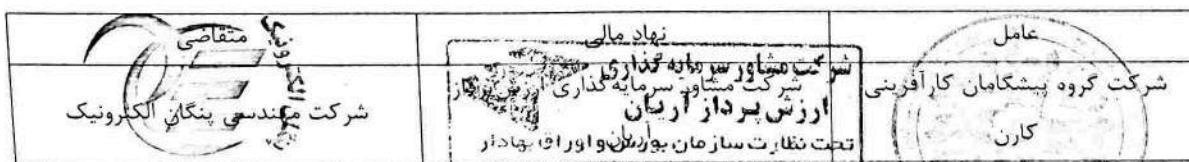 عامل
نهاد مالی
متقاضی
شرکت گروه پیشگامان کارآفرینی
کارن
شرکت مشاور سرمایه گذاری ارزش پرداز
آریان
شرکت مهندسی پنگان الکترونیک
شرکت مشاور سرمایه گذاری
ارزش پرداز آریان
تحت نظارت سازمان بورس و اوراق بهادار
پنگان الکترونیک